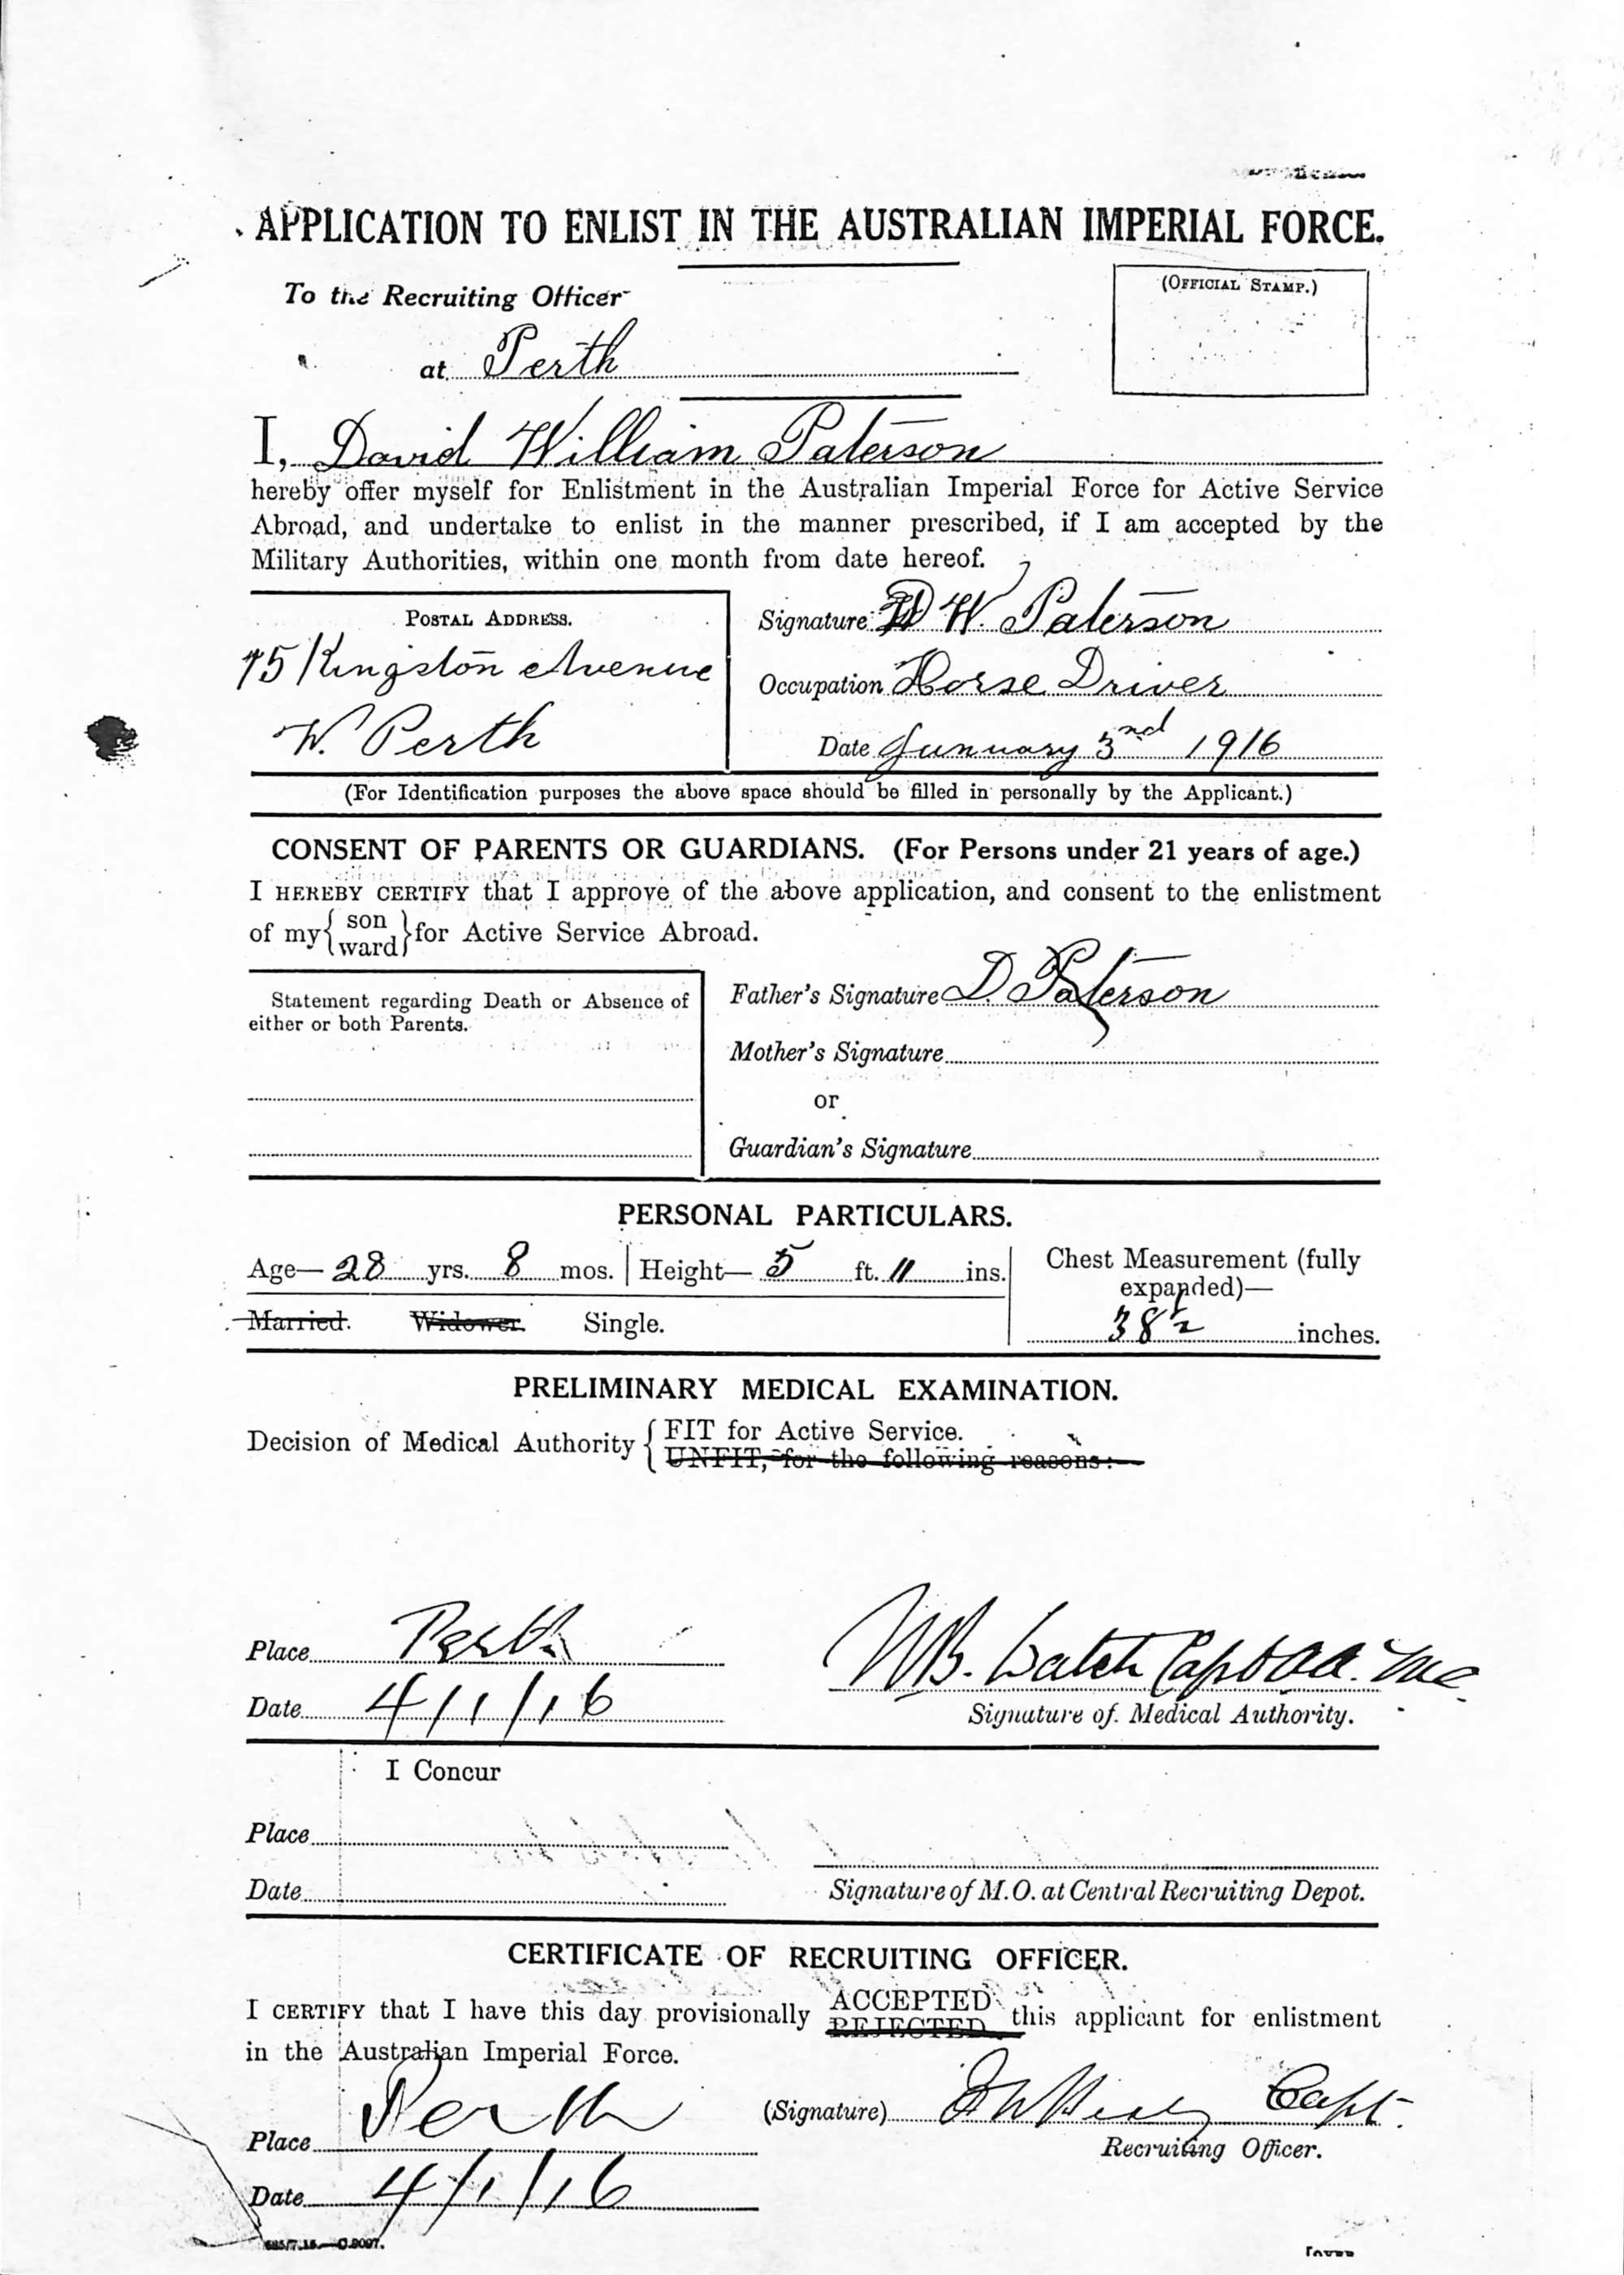 APPLICATION TO ENLIST IN THE AUSTRALIAN IMPERIAL FORCE.
To the Recruiting Officer
(OFFICIAL STAMP.)
at Perth
I, David William Paterson
hereby offer myself for Enlistment in the Australian Imperial Force for Active Service
Abroad, and undertake to enlist in the manner prescribed, if I am accepted by the
Military Authorities, within one month from date hereof.
POSTAL ADDRESS.
75 Kingston Avenue
W. Perth
Signature D W. Paterson
Occupation Horse Driver
Date January 3nd 1916
(For Identification purposes the above space should be filled in personally by the Applicant.)
CONSENT OF PARENTS OR GUARDIANS. (For Persons under 21 years of age.)
I HEREBY CERTIFY that I approve of the above application, and consent to the enlistment
of my { son ward } for Active Service Abroad.
Statement regarding Death or Absence of
either or both Parents.
Father's Signature D. Paterson
Mother's Signature
or
Guardian's Signature
PERSONAL PARTICULARS.
Age— 28 yrs. 8 mos. Height— 5 ft. 11 ins.
Chest Measurement (fully
expanded)—
38½ inches.
Married. Widower. Single.
PRELIMINARY MEDICAL EXAMINATION.
Decision of Medical Authority { FIT for Active Service.
UNFIT, for the following reasons:—
Place Perth
Date 4/1/16
Signature of Medical Authority.
I Concur
Place
Date
Signature of M.O. at Central Recruiting Depot.
CERTIFICATE OF RECRUITING OFFICER.
I CERTIFY that I have this day provisionally ACCEPTED REJECTED this applicant for enlistment
in the Australian Imperial Force.
Place Perth
(Signature) Capt.
Recruiting Officer.
Date 4/1/16
C.9097.